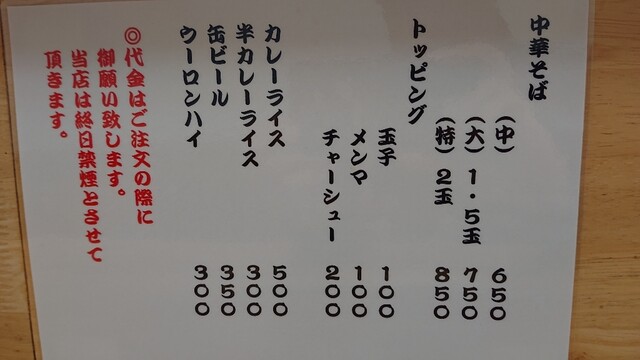 中華そば
(中) 650
(大)1・5玉 750
(特)2玉 850
トッピング
玉子 100
メンマ 100
チャーシュー 200
カレーライス 500
半カレーライス 300
缶ビール 350
ウーロンハイ 300
◎代金はご注文の際に
御願い致します。
当店は終日禁煙とさせて
頂きます。